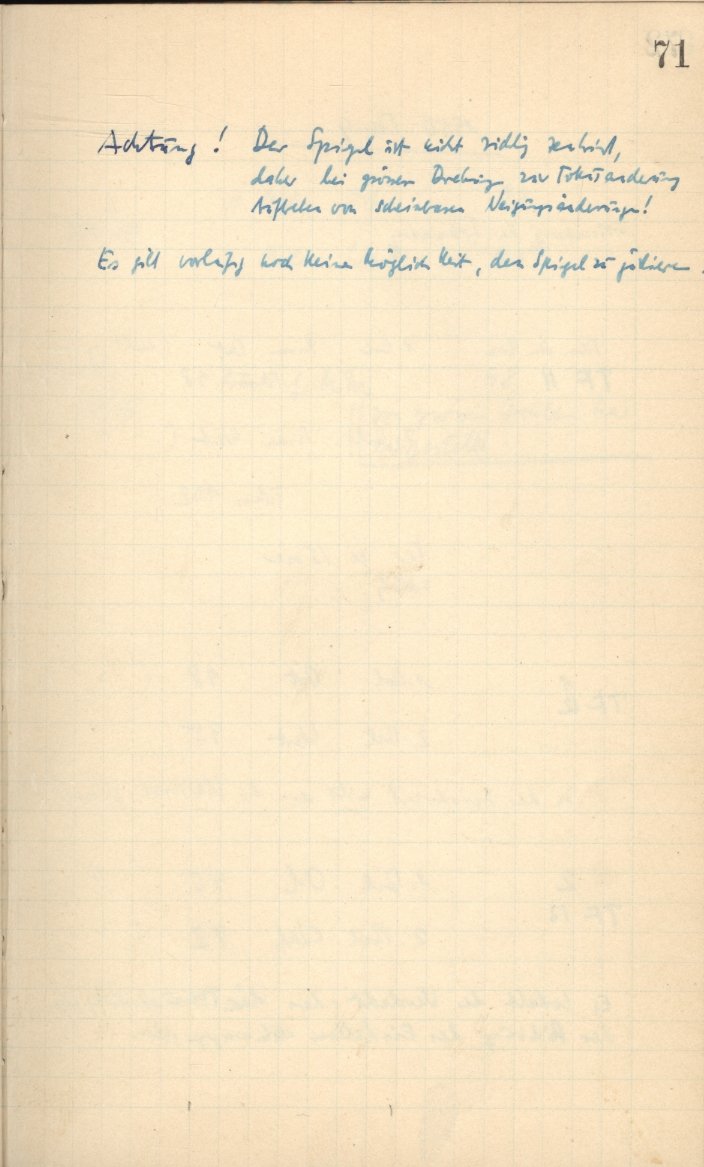 71
Achtung! Der Spiegel ist nicht richtig zentriert,
daher bei grösseren Drehungen zur Fokusänderung
Auftreten von scheinbaren Neigungsänderungen!
Es gibt vorläufig noch keine Möglichkeit, den Spiegel zu justieren.